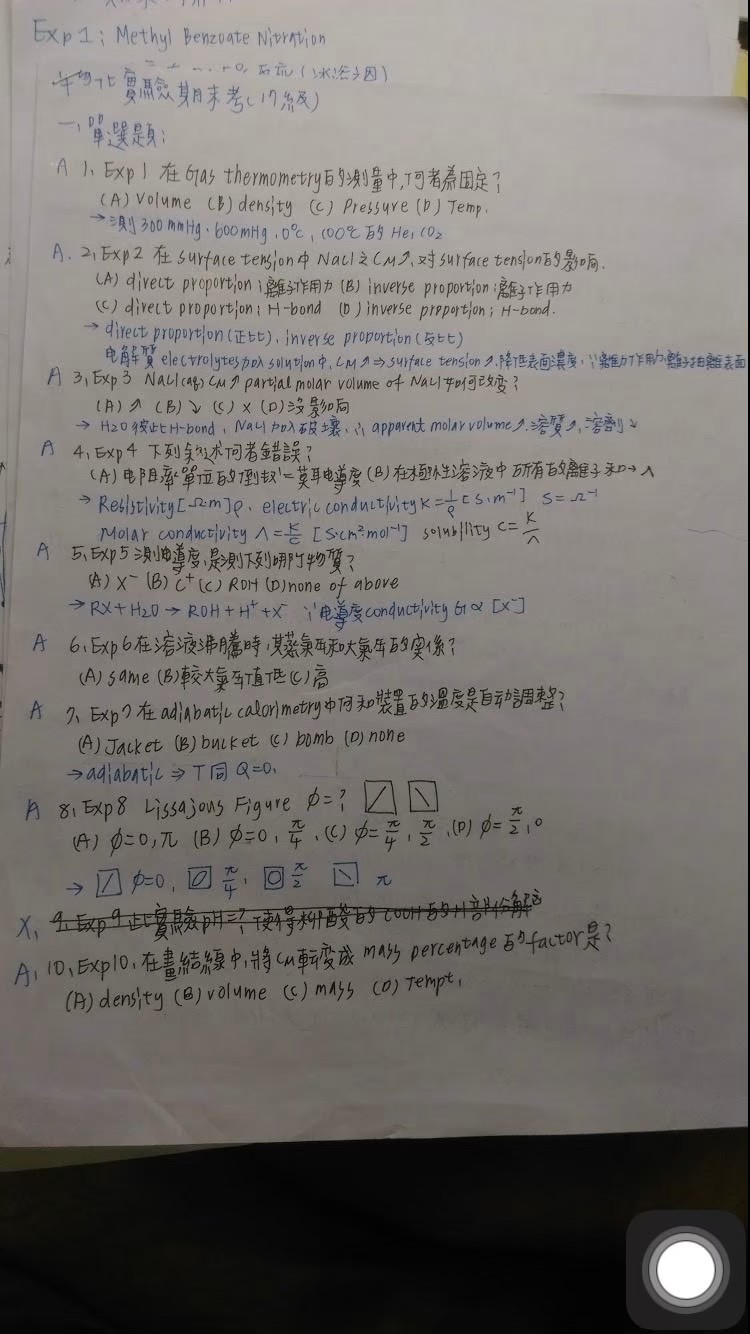 Exp 1: Methyl Benzoate Nitration
實驗期末考(17級)
一、單選題:
A 1. Exp 1 在 Gas thermometry的測量中,何者為固定?
(A) Volume (B) density (C) Pressure (D) Temp.
→測300mmHg、600mmHg、0°C、100°C的 He, CO2
A. 2. Exp2 在 surface tension中 NaCl之CM↗,對surface tension的影响.
(A) direct proportion;離子作用力 (B) inverse proportion;離子作用力
(C) direct proportion; H-bond (D) inverse prpportion; H-bond.
→ direct proportion(正比)、inverse proportion(反比)
电解質 electrolytes加入solution中, CM↗⇒surface tension↗,降低表面濃度,∵離子作用力離子抽離表面
A 3. Exp3 NaCl(aq) CM↗ partial molar volume of NaCl如何改變?
(A)↗ (B)↘ (C) X (D)沒影响
→ H2O彼此H-bond, NaCl加入破壞,∴ apparent molar volume↗,溶質↗,溶劑↘
A 4. Exp4 下列敘述何者錯誤?
(A)电阻率單位的倒数=莫耳电導度 (B)在極性溶液中所有的離子和→Λ
→ Resistivity[Ω·m]ρ、electric conductivity κ=1/ρ [S·m⁻¹] S=Ω⁻¹
Molar conductivity Λ=κ/c [S·cm²·mol⁻¹] solubility C=κ/Λ
A 5. Exp5測电導度,是測下列哪門物質?
(A) X⁻ (B) C⁺ (C) ROH (D) none of above
→RX+H2O→ROH+H⁺+X⁻ ∵电導度conductivity G∝[X⁻]
A 6. Exp6在溶液沸騰時,其蒸氣压和大氣压的関係?
(A) same (B)較大氣压值低 (C)高
A 7. Exp7在adiabatic calorimetry中何種裝置的溫度是自动調整?
(A) Jacket (B) bucket (C) bomb (D) none
→adiabatic⇒T同 Q=0.
A 8. Exp8 Lissajous Figure φ=?
(A) φ=0,π (B) φ=0, π/4 .(C) φ=π/4, π/2 .(D) φ=π/2, 0
→ φ=0, π/4, π/2 π
X. 9. Exp9 此實驗pH=?,使得柳酸的COOH的H部份解
A. 10. Exp10. 在畫結線中,將CM転变成 mass percentage的factor是?
(A) density (B) volume (C) mass (D) Tempt.